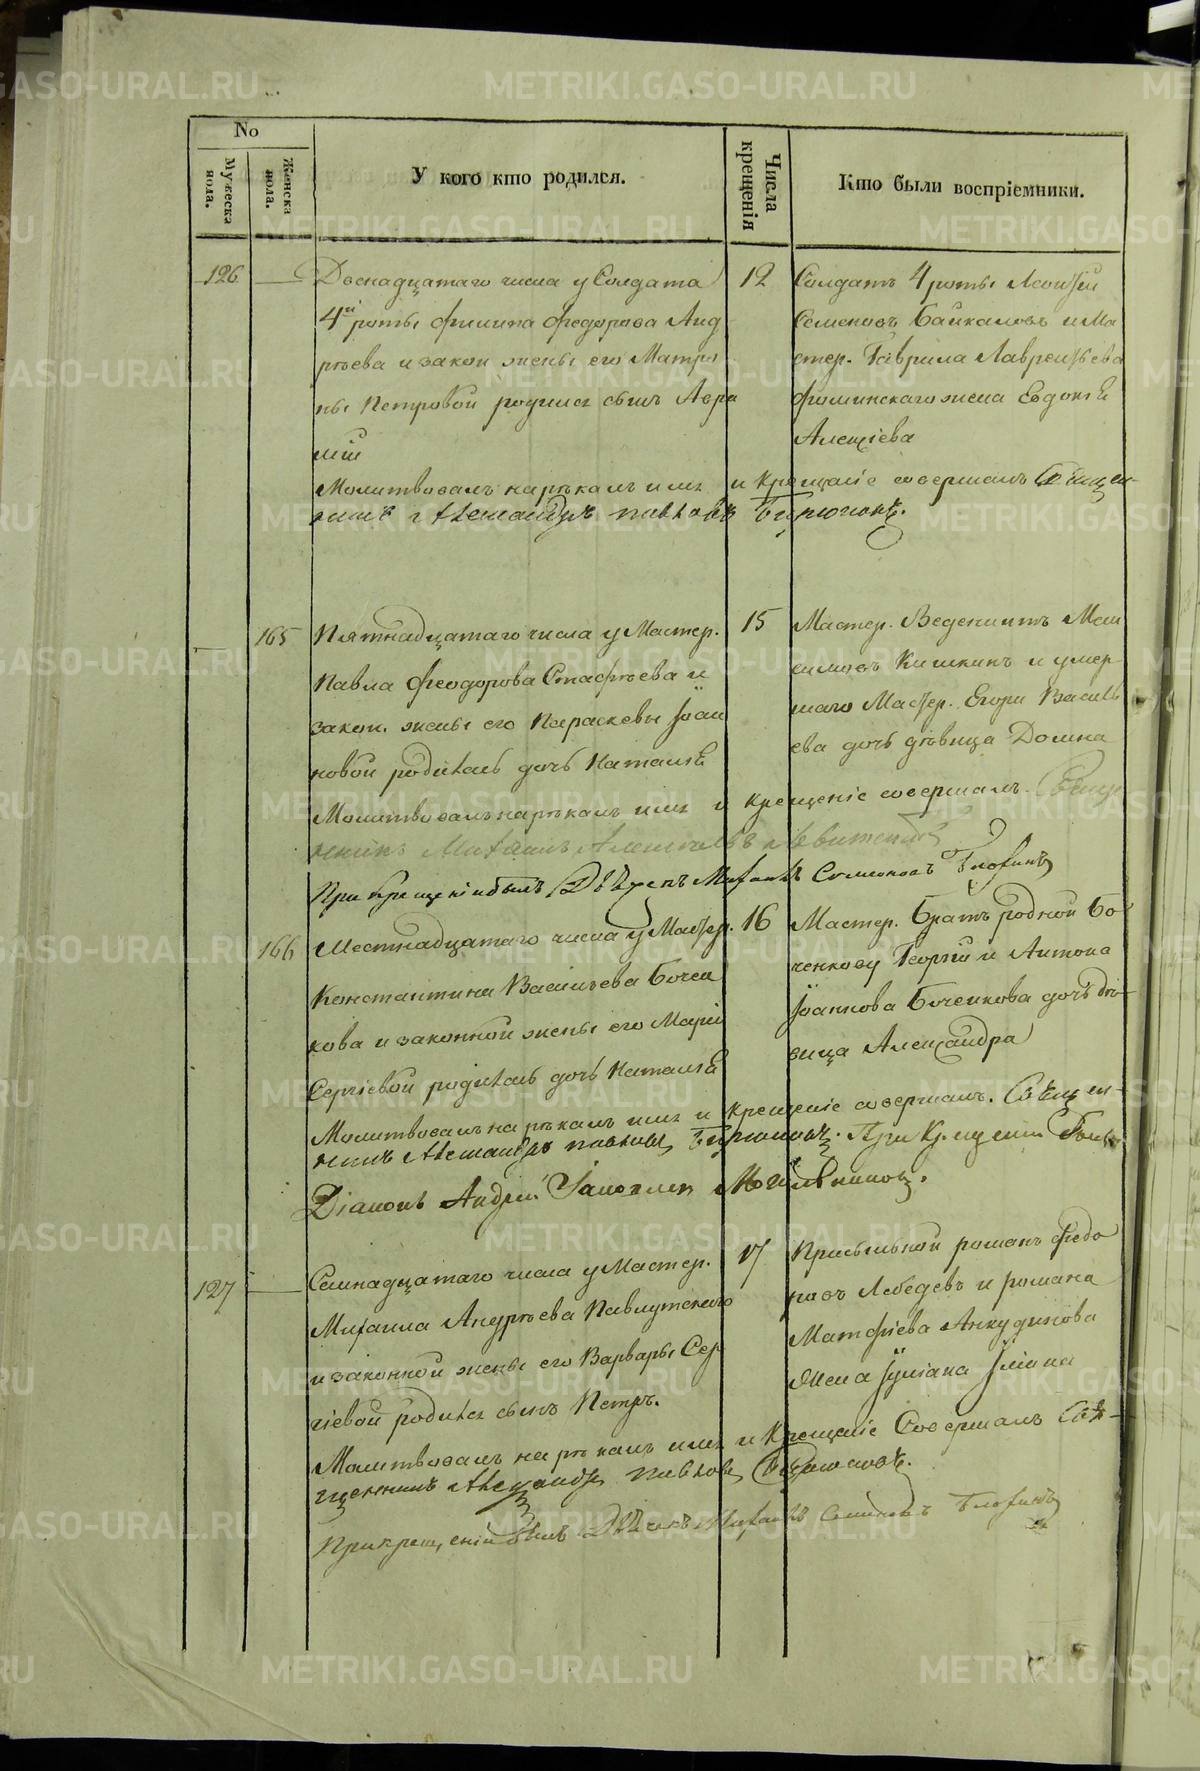 No
Мужеска пола.
Женска пола.
У кого кто родился.
Числа крещенія
Кто были воспріемники.
126
Двенадцатаго числа у Солдата
4й роты Филипа Федорова Анд
рѣева и закон жены его Матро
ны Петровой родился сынъ Авра
мій
Молитвовалъ нарѣкалъ имя и крещаніе совершалъ Священ-
никъ Александръ Павловъ Бирюковъ.
12
Солдатъ 4 роты Леонтій
Семеновъ Байкаловъ и Ма
стер. Гаврила Лаврентьева
Фоминскаго жена Евдокія
Алексіева
165
Пятнадцатаго числа у Мастер.
Павла Феодорова Стафѣева и
закон. жены его Параскевы Іоан
новой родилась дочь Наталія
Молитвовалъ нарѣкалъ имя и крещеніе совершалъ Свяще
нникъ Михаилъ Алексіевъ Левитскій
При крещеніи былъ Дьячекъ Михаилъ Симеоновъ Глофинъ
15
Мастер. Веденихтъ Мак
симовъ Кишкинъ и умер
шаго Мастер. Егора Василь
ева дочь дѣвица Домна
166
Шестнадцатаго числа у Мастер.
Константина Васильева Бочен
кова и законной жены его Маріи
Сергіевой родилась дочь Наталія
Молитвовалъ нарѣкалъ имя и крещеніе совершалъ. Священ-
никъ Александръ Павловъ Бирюковъ. При Крещеніи былъ
Діаконъ Андрей Іаковлев Могильниковъ.
16
Мастер. Братъ родной Бо
ченкову Георгій и Антона
Іоаннова Боченкова дочь дѣ-
вица Александра
127
Семнадцатаго числа у Мастер.
Михаила Андрѣева Павлутскаго
и законной жены его Варвары Сер
гіевой родился сынъ Петръ.
Молитвовалъ нарѣкалъ имя и Крещаніе Совершалъ Свя-
щенникъ Александръ Павловъ Бирюковъ.
При крещеніи былъ Дьячекъ Михаилъ Симеоновъ Глофинъ
17
Присыльной Романъ Федо
ровъ Лебедевъ и Романа
Матфіева Анкудинова
жена Іуліана Іліана
METRIKI.GASO-URAL.RU